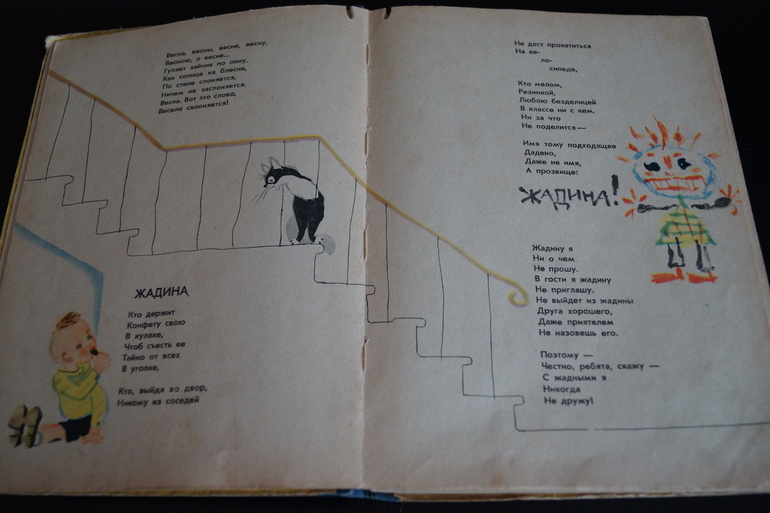 Весна, весны, весне, весну,
Весною, о весне...
Гуляет зайчик по окну,
Как солнце на блесне,
По стене слоняется,
Ничем не заслоняется.
Весна. Вот это слово,
Весело склоняется!
ЖАДИНА
Кто держит
Конфету свою
В кулаке,
Чтоб съесть ее
Тайно от всех
В уголке,
Кто, выйдя во двор,
Никому из соседей
Не даст прокатиться
На ве-
ло-
сипеде,
Кто мелом,
Резинкой,
Любою безделицей
В классе ни с кем
Ни за что
Не поделится —
Имя тому подходящее
Дадено,
Даже не имя,
А прозвище:
ЖАДИНА!
Жадину я
Ни о чем
Не прошу.
В гости я жадину
Не приглашу.
Не выйдет из жадины
Друга хорошего,
Даже приятелем
Не назовешь его.
Поэтому —
Честно, ребята, скажу —
С жадными я
Никогда
Не дружу!